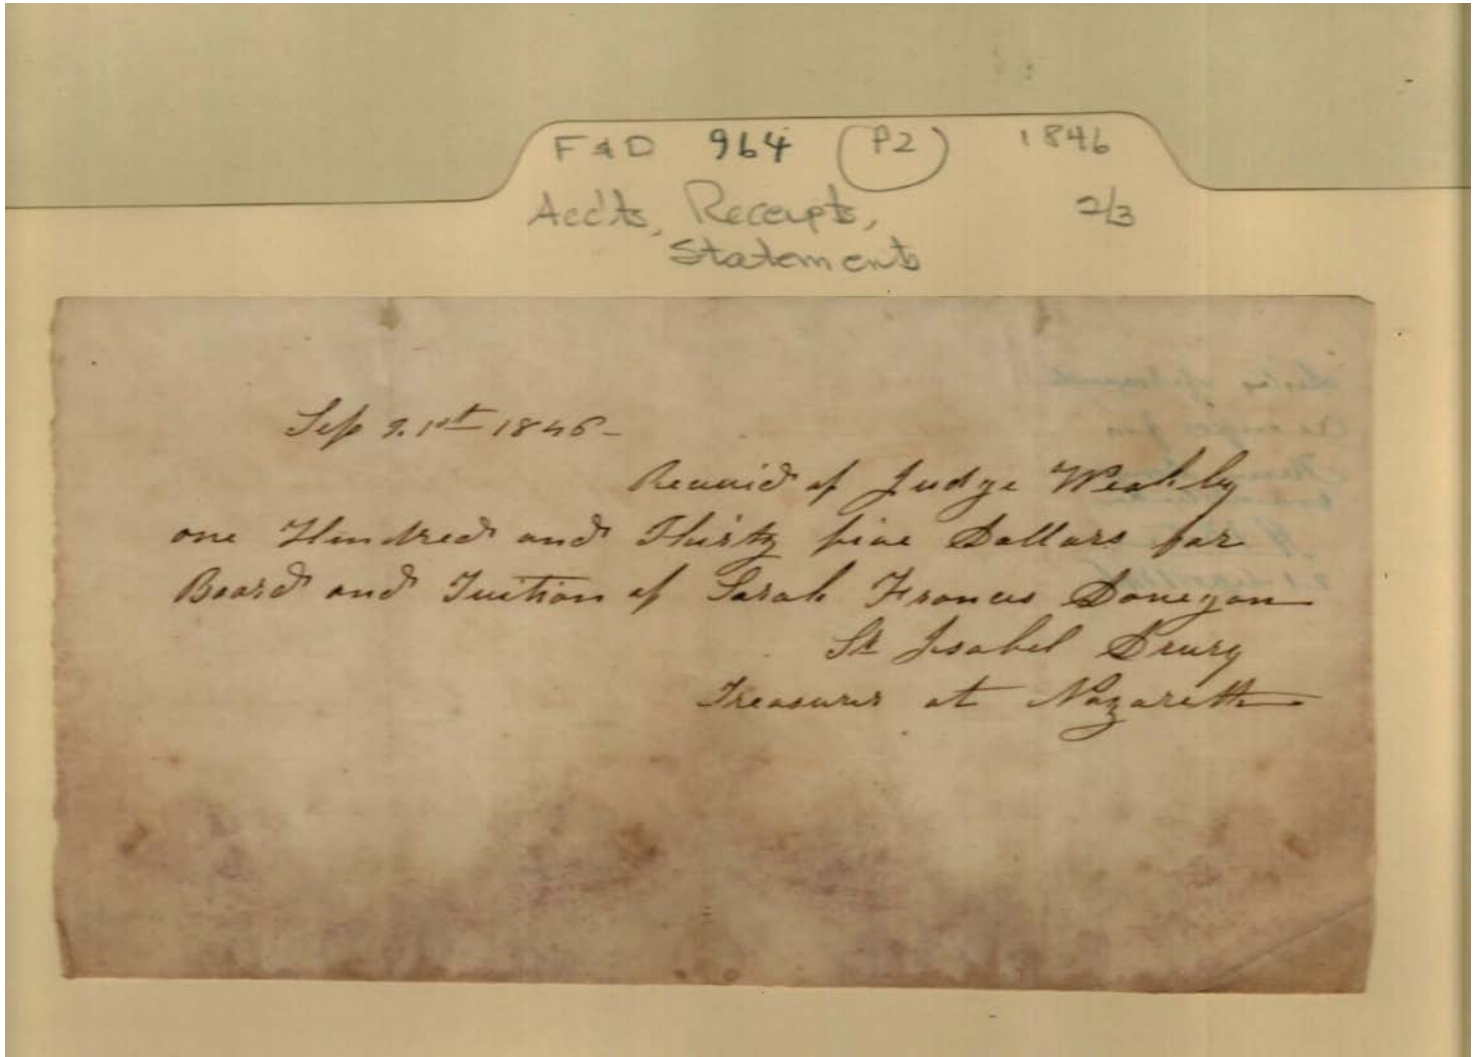 F & D 964 (P2) 1846
Acc'ts, Receipts, 2/3
Statements
Sep 21st 1846-
Received of Judge Weakley
one Hundred and Thirty five Dollars for
Board and Tuition of Sarah Frances Donegan
Sr Isabel Drury
Treasurer at Nazareth